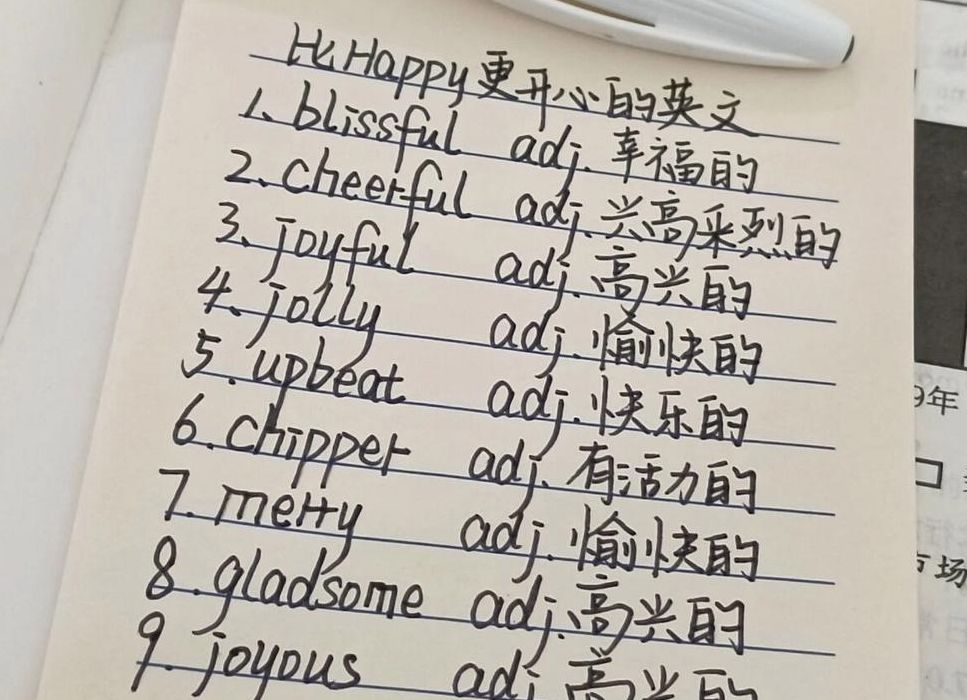 比Happy更开心的英文
1、blissful adj. 幸福的
2、cheerful adj. 兴高采烈的
3、joyful adj. 高兴的
4、jolly adj. 愉快的
5.upbeat adj. 快乐的
6.chipper adj. 有活力的
7.merry adj. 愉快的
8.gladsome adj. 高兴的
9.joyous adj. 高兴的
9年
市场